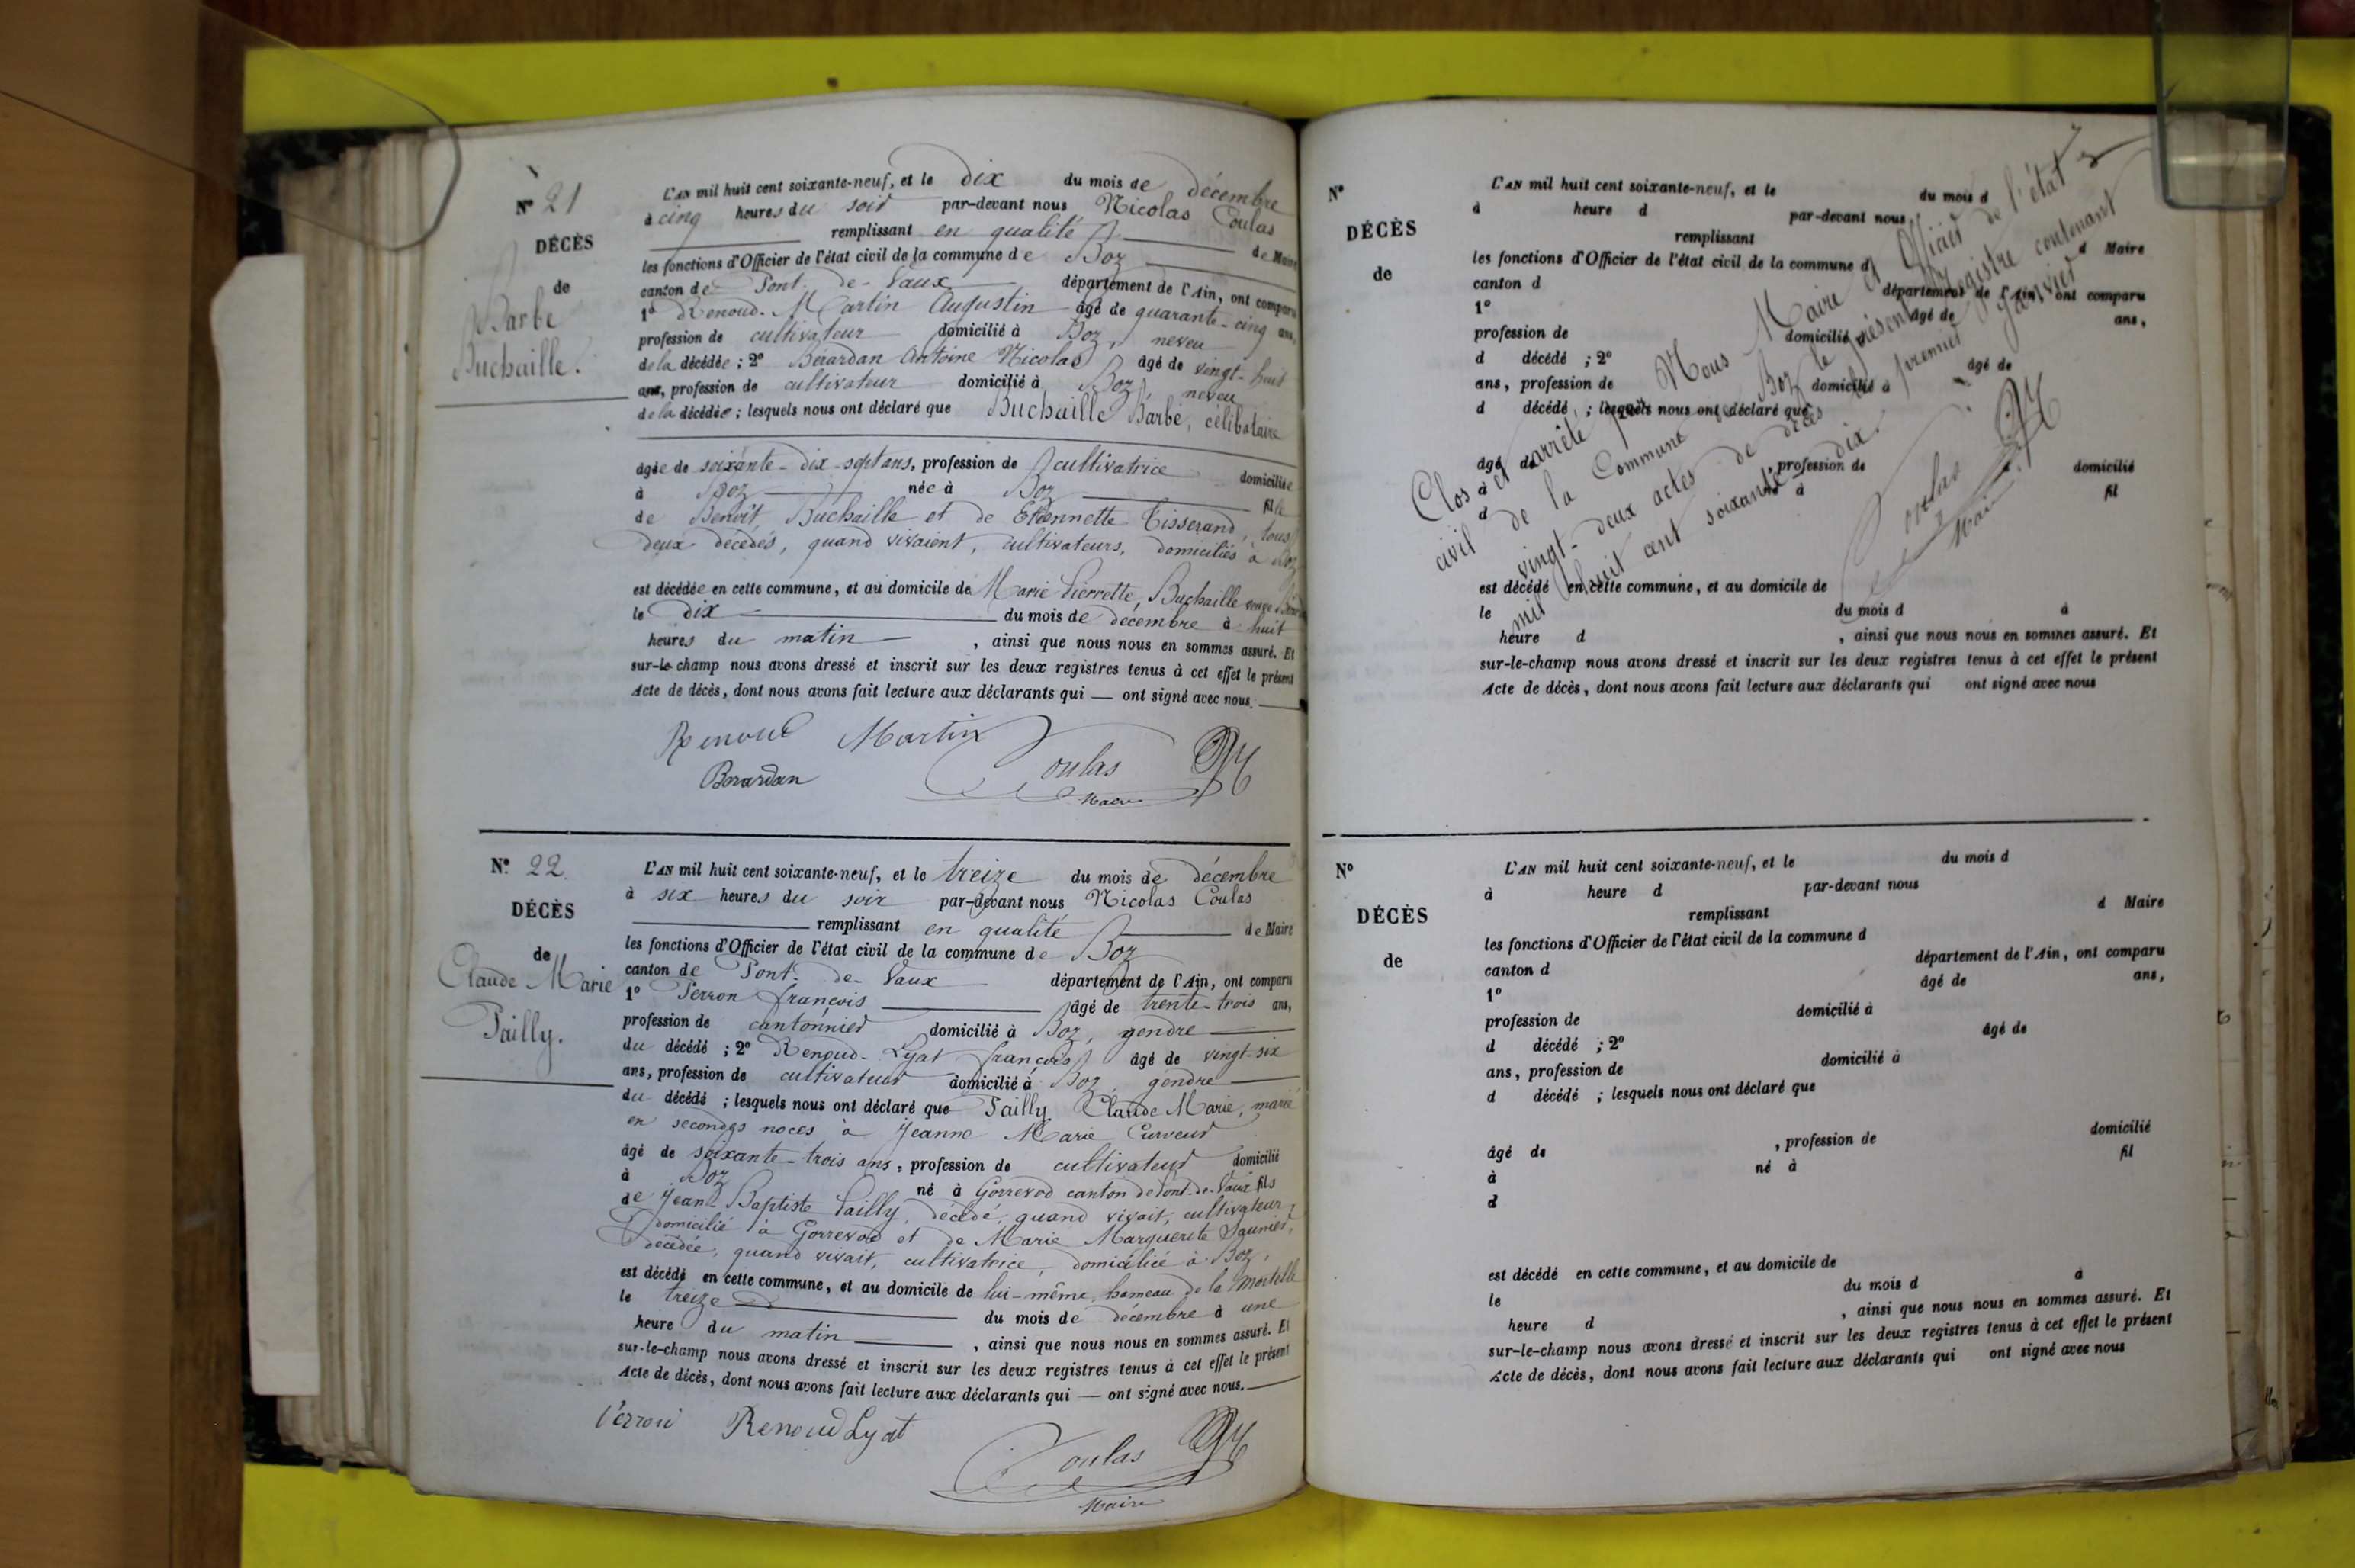 N° 21
DÉCÈS
de
Barbe
Buchaille.
L'AN mil huit cent soixante-neuf, et le dix du mois de décembre
à cinq heures du soir par-devant nous Nicolas Coulas
remplissant en qualité de Maire
les fonctions d'Officier de l'état civil de la commune de Boz
canton de Pont-de-Vaux département de l'Ain, ont comparu
1° Renoud-Martin Augustin âgé de quarante-cinq ans,
profession de cultivateur domicilié à Boz, neveu
de la décédée ; 2° Berardan Antoine Nicolas âgé de vingt-huit
ans, profession de cultivateur domicilié à Boz neveu
de la décédée ; lesquels nous ont déclaré que Buchaille Barbe, célibataire
âgée de soixante-dix-sept ans, profession de cultivatrice domiciliée
à Boz née à Boz fille
de Benoît Buchaille et de Etiennette Tisserand, tous
deux décédés, quand vivaient, cultivateurs, domiciliés à Boz
est décédée en cette commune, et au domicile de Marie Pierrette Buchaille veuve
le dix du mois de décembre à huit
heures du matin , ainsi que nous nous en sommes assuré. Et
sur-le-champ nous avons dressé et inscrit sur les deux registres tenus à cet effet le présent
Acte de décès, dont nous avons fait lecture aux déclarants qui — ont signé avec nous.
Renoud Martin
Berardan
Coulas
Maire
N° 22
DÉCÈS
de
Claude Marie
Pailly.
L'AN mil huit cent soixante-neuf, et le treize du mois de décembre
à six heures du soir par-devant nous Nicolas Coulas
remplissant en qualité de Maire
les fonctions d'Officier de l'état civil de la commune de Boz
canton de Pont-de-Vaux département de l'Ain, ont comparu
1° Perron françois âgé de trente-trois ans,
profession de cantonnier domicilié à Boz, gendre
du décédé ; 2° Renoud-Lyat françois âgé de vingt-six
ans, profession de cultivateur domicilié à Boz gendre
du décédé ; lesquels nous ont déclaré que Pailly Claude Marie, marié
en secondes noces à Jeanne Marie Curveur
âgé de soixante-trois ans, profession de cultivateur domicilié
à Boz né à Gorrevod canton de Pont-de-Vaux fils
de Jean Baptiste Pailly, décédé, quand vivait, cultivateur,
domicilié à Gorrevod et de Marie Marguerite Saunier,
décédée, quand vivait, cultivatrice, domiciliée à Boz,
est décédé en cette commune, et au domicile de lui-même, hameau de la Mortelle
le treize du mois de décembre à une
heure du matin , ainsi que nous nous en sommes assuré. Et
sur-le-champ nous avons dressé et inscrit sur les deux registres tenus à cet effet le présent
Acte de décès, dont nous avons fait lecture aux déclarants qui — ont signé avec nous.
Perron Renoud Lyat
Coulas
Maire
N°
DÉCÈS
de
L'AN mil huit cent soixante-neuf, et le du mois d
à heure d par-devant nous
remplissant d Maire
les fonctions d'Officier de l'état civil de la commune d
canton d département de l'Ain, ont comparu
1° âgé de ans,
profession de domicilié à
d décédé ; 2° âgé de
ans, profession de domicilié à
d décédé ; lesquels nous ont déclaré que
âgé de , profession de domicilié
à né à fil
d
est décédé en cette commune, et au domicile de
le du mois d à
heure d , ainsi que nous nous en sommes assuré. Et
sur-le-champ nous avons dressé et inscrit sur les deux registres tenus à cet effet le présent
Acte de décès, dont nous avons fait lecture aux déclarants qui ont signé avec nous
Clos et arrêté par Nous Maire et Officier de l'état
civil de la Commune de Boz le présent registre contenant
vingt-deux actes de décès le premier Janvier
mil huit cent soixante-dix.
Coulas
Maire
N°
DÉCÈS
de
L'AN mil huit cent soixante-neuf, et le du mois d
à heure d par-devant nous
remplissant d Maire
les fonctions d'Officier de l'état civil de la commune d
canton d département de l'Ain, ont comparu
1° âgé de ans,
profession de domicilié à
d décédé ; 2° âgé de
ans, profession de domicilié à
d décédé ; lesquels nous ont déclaré que
âgé de , profession de domicilié
à né à fil
d
est décédé en cette commune, et au domicile de
le du mois d à
heure d , ainsi que nous nous en sommes assuré. Et
sur-le-champ nous avons dressé et inscrit sur les deux registres tenus à cet effet le présent
Acte de décès, dont nous avons fait lecture aux déclarants qui ont signé avec nous